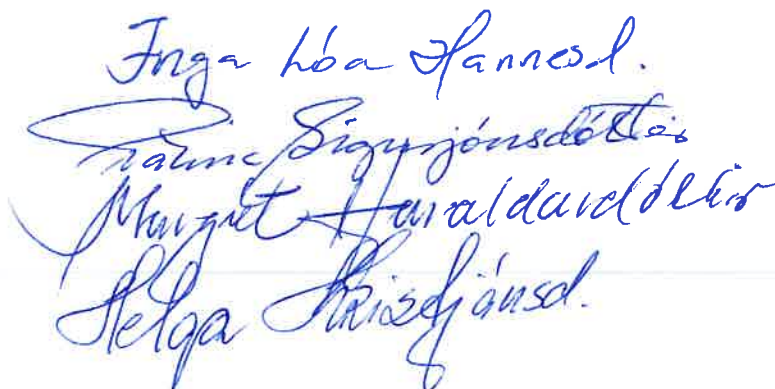 Inga Lóa Hannesd.
Pálína Sigurjónsdóttir
Margrét Haraldardóttir
Helga Kristjánsd.